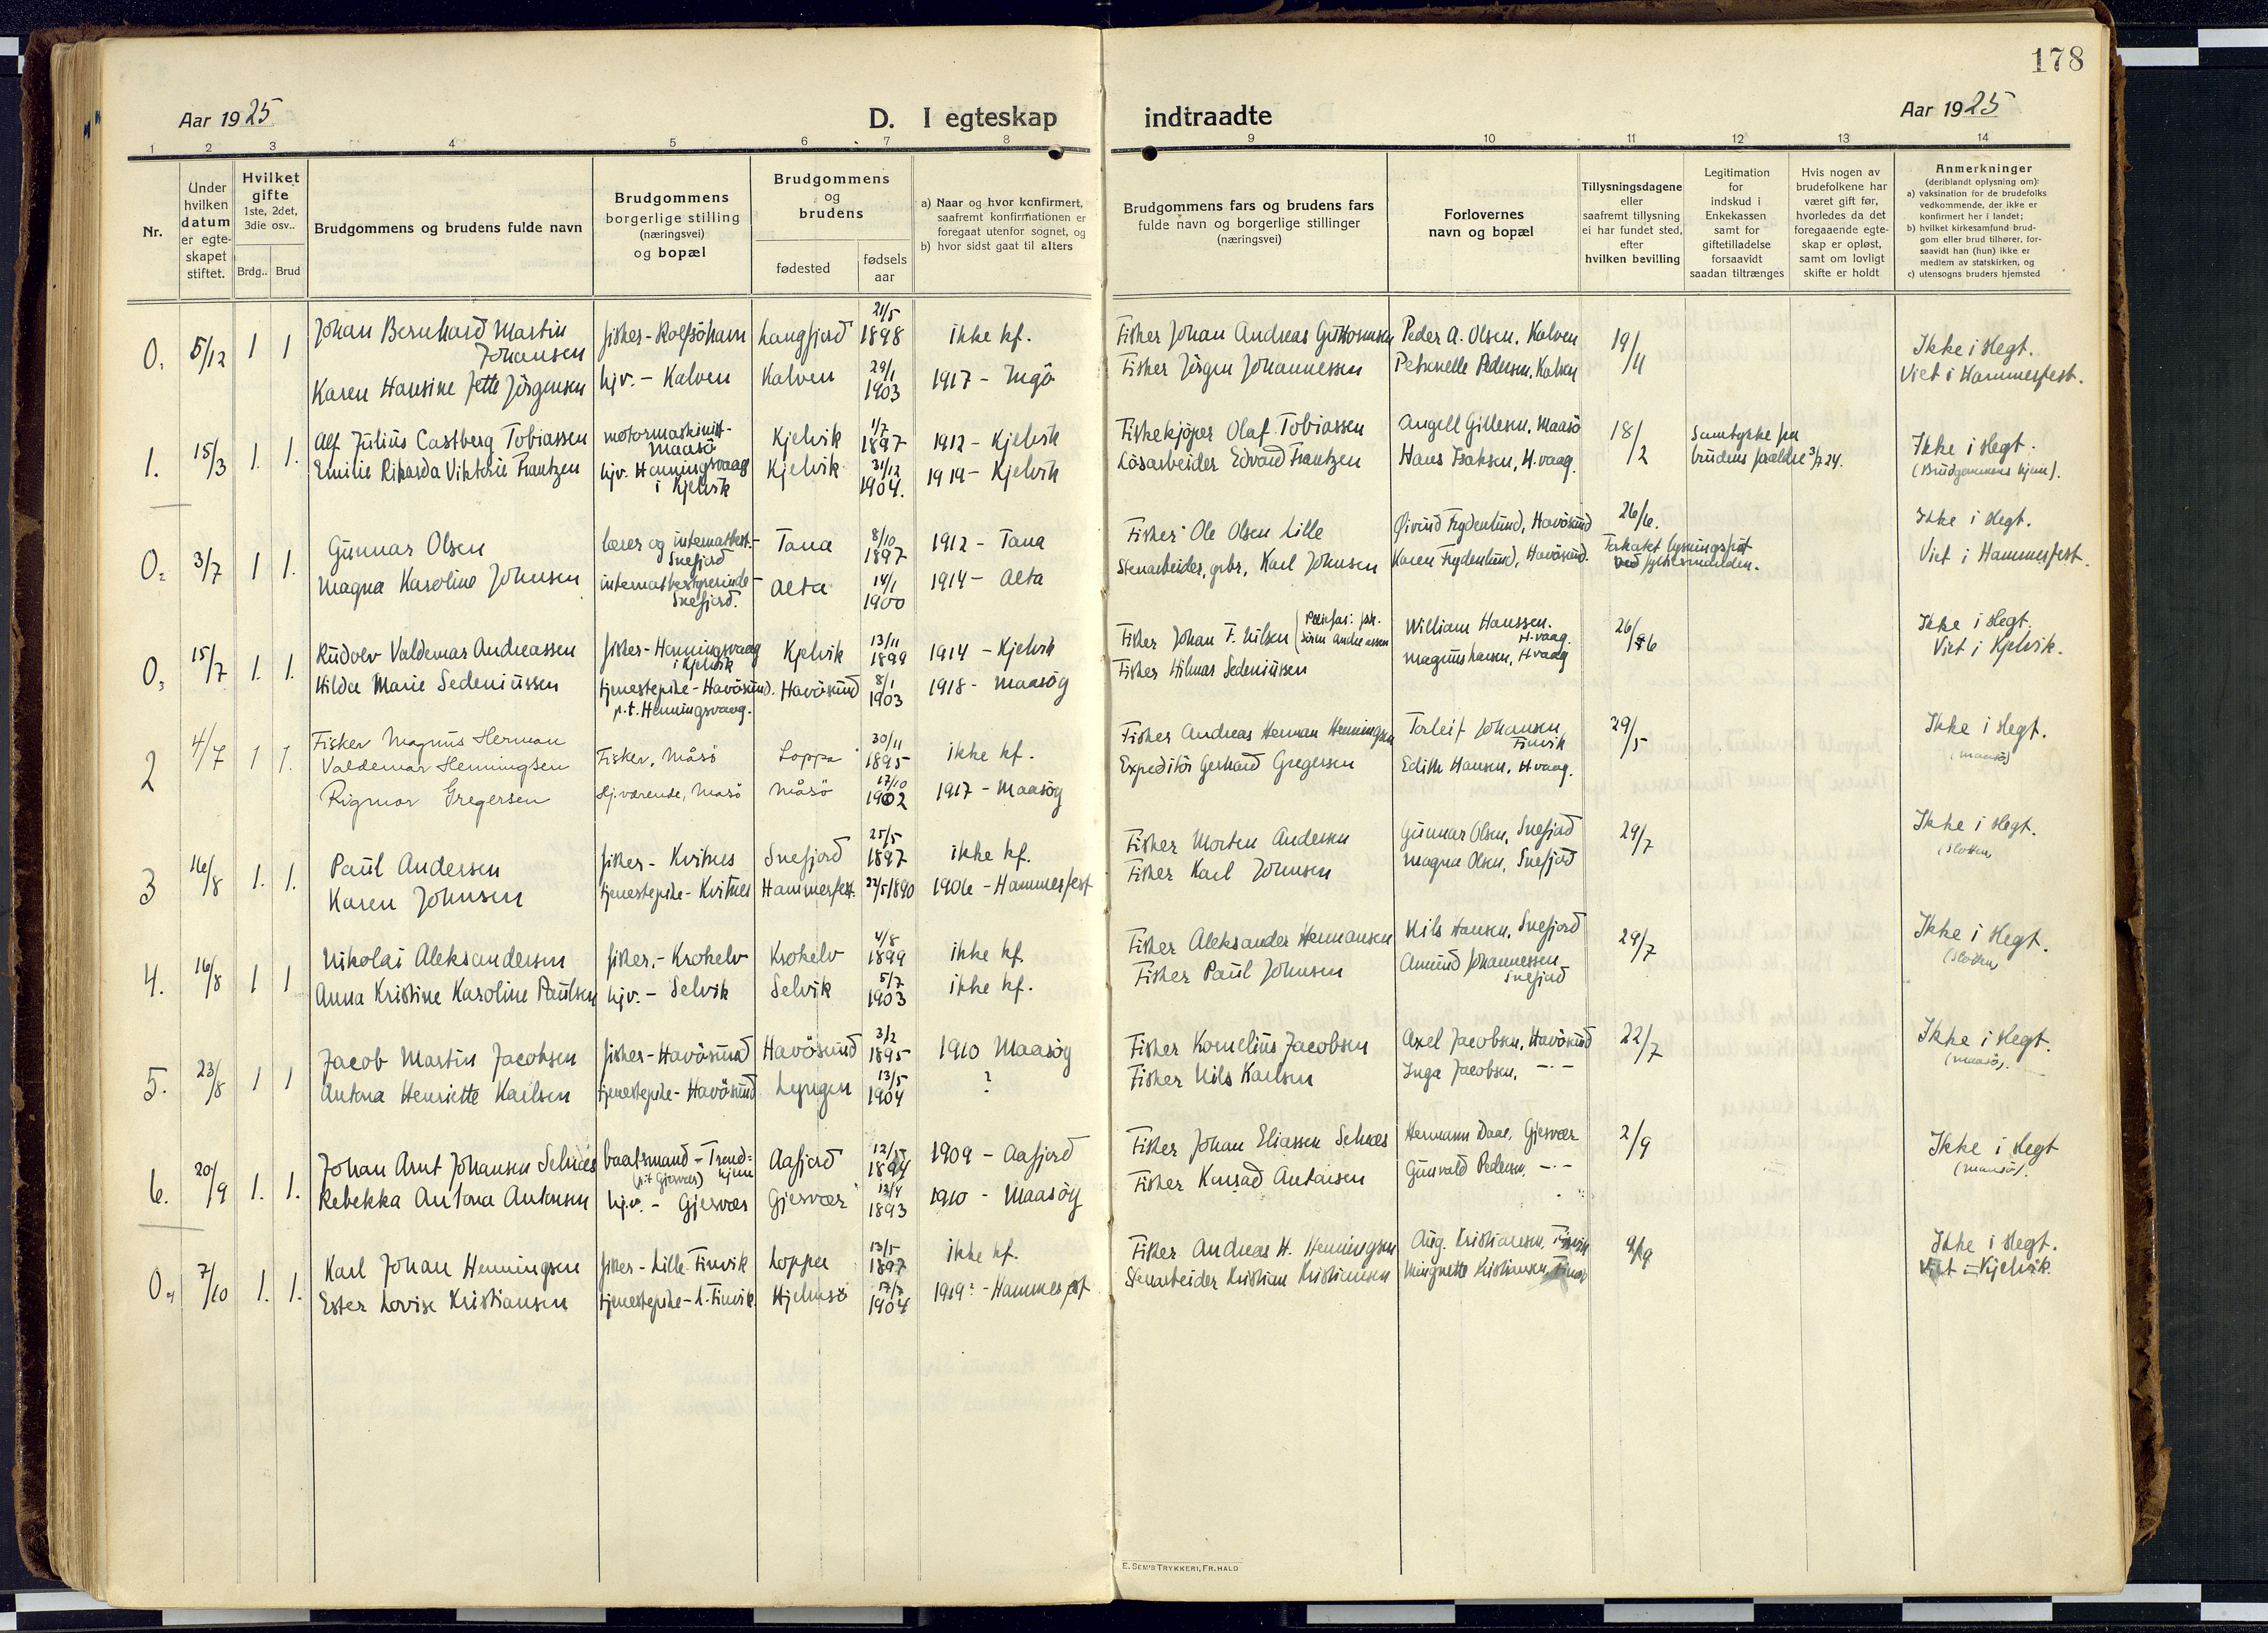 178
Aar 1925
D. I egteskap indtraadte
Aar 1925
1 2 3 4 5 6 7 8 9 10 11 12 13 14
Nr.
Under hvilken datum er egte-skapet stiftet.
Hvilket gifte 1ste, 2det, 3die osv..
Brdg.. Brud
Brudgommens og brudens fulde navn
Brudgommens borgerlige stilling (næringsvei) og bopæl
Brudgommens og brudens
fødested
fødsels aar
a) Naar og hvor konfirmert, saafremt konfirmationen er foregaat utenfor sognet, og
b) hvor sidst gaat til alters
Brudgommens fars og brudens fars fulde navn og borgerlige stillinger (næringsvei)
Forlovernes navn og bopæl
Tillysningsdagene eller saafremt tillysning ei har fundet sted, efter hvilken bevilling
Legitimation for indskud i Enkekassen samt for giftetilladelse forsaavidt saadan tiltrænges
Hvis nogen av brudefolkene har været gift før, hvorledes da det foregaaende egte-skap er opløst, samt om lovligt skifte er holdt
Anmerkninger
(deriblandt oplysning om):
a) vaksination for de brudefolks vedkommende, der ikke er konfirmert her i landet;
b) hvilket kirkesamfund brud-gom eller brud tilhører, for-saavidt han (hun) ikke er medlem av statskirken, og
c) utensogns bruders hjemsted
0, 5/12 1 1 Johan Bernhard Martin Johansen fisker - Rolfsöhavn Langfjord 21/5 1898 ikke kf. Fisker Johan Andreas Peder A. Olsen, Kalven 19/11 Ikke i slegt.
Karen Hansine Jette Jörgensen hjv. - Kalven Kalven 29/1 1903 1917 - Ingö Fisker Jörgen Johannessen Petronelle Pedersen, Kalven Viet i Hammerfest.
1. 15/3 1. 1. Alf Julius Castberg Tobiassen motormaskinist - Maasö Kjelvik 1/7 1897 1912 - Kjelvik Fiskekjöper Olaf Tobiassen Angell Gillesen, Maasö 18/2 Samtykke fra brudens forældre 3/2 24. Ikke i slegt.
Emilie Rikarda Viktorie Frantzen hjv. Honningsvaag i Kjelvik Kjelvik 31/12 1904. 1919 - Kjelvik Lösarbeider Edvard Frantzen Hans Isaksen, H.vaag. (Brudgommens hjem).
0, 3/7 1 1. Gunnar Olsen lærer og internatbest. - Snefjord Tana 8/10 1897 1912 - Tana Fisker Ole Olsen Lille Øivind Frydenlund, Havösund 26/6. Ikke i slegt.
Magna Karoline Johnsen internatbestyrerinde - Snefjord. Alta 14/1 1900 1914 - Alta Stenarbeider, grbr, Karl Johnsen Karen Frydenlund, Havösund. Forkortet lysningsfrist ved fylkesmanden. Viet i Hammerfest.
0, 15/7 1. 1. Rudolv Valdemar Andreassen fisker - Honningsvaag i Kjelvik Kjelvik 13/11 1899 1914 - Kjelvik Fisker Johan F. Nilsen (Pleiefar: fisk. Sören Andreassen William Hanssen. H.vaag. 26/6 Ikke i slegt.
Hilda Marie Sedeniussen tjenestepike - Havösund. p.t. Honningsvaag. Havösund 8/1 1903 1918 - Maasöy Fisker Hilmar Sedeniussen Magnus Hansen, H.vaag Viet i Kjelvik.
2 4/7 1 1. Fisker Magnus Herman Valdemar Henningsen Fisker, Måsö Loppa 30/11 1895 ikke kf. Fisker Andreas Herman Henningsen Torleif Johansen, Finvik 29/5 Ikke i slegt.
Rigmor Gregersen Hj.værende, Måsö Måsö 17/10 1902 1917 - Maasöy Expeditör Gerhard Gregersen Edith Hansen, H.vaag. (Maasö)
3 16/8 1. 1. Paul Andersen fisker - Kvitnes Snefjord 25/5 1897 ikke kf. Fisker Morten Andersen Gunnar Olsen, Snefjord 29/7 Ikke i slegt.
Karen Johnsen tjenestepike - Kvitnes Hammerfest. 22/5 1890 1906 - Hammerfest Fisker Karl Johnsen Magna Olsen, Snefjord (Slotten)
4. 16/8 1 1 Nikolai Aleksandersen fisker. - Krokelv Krokelv 4/8 1899 ikke kf. Fisker Aleksander Hermansen Nils Hansen, Snefjord 29/7 Ikke i slegt.
Anna Kristine Karoline Paulsen hjv. - Selvik Selvik 5/7 1903 ikke kf. Fisker Paul Johnsen Amund Johannessen Snefjord (Slotten)
5. 23/8 1 1 Jacob Martin Jacobsen fisker - Havösund Havösund 3/2 1895 1910 Maasöy Fisker Kornelius Jacobsen Axel Jacobsen, Havösund 22/7 Ikke i slegt.
Antona Henriette Karlsen tjenestepike - Havösund Lyngen 13/5 1904 ? Fisker Nils Karlsen Inga Jacobsen, -·- (Maasö).
6. 20/9 1. 1. Johan Arnt Johansen Selnæs baatsmand - Trond=hjem (p.t Gjesvær) Aafjord 12/5 1894 1909 - Aafjord Fisker Johan Eliassen Selnæs Hermann Daae, Gjesvær 2/9 Ikke i slegt
Rebekka Antona Antonsen hjv. - Gjesvær Gjesvær 13/4 1893 1910 - Maasöy Fisker Konrad Antonsen Gunvald Pedersen, -·- (Maasö).
0, 7/10 1. 1. Karl Johan Henningsen fisker - Lille Finvik Loppa 13/5 1897 ikke kf. Fisker Andreas H. Henningsen Aug. Kristiansen, Finvik 9/9 Ikke i slegt.
Ester Lovise Kristiansen tjenestepike - L. Finvik. Hjelmsö 17/7 1904 1919? - Hammerfest Stenarbeider Kristian Kristiansen Kristiansen, Finvik Viet i Kjelvik.
E. SEM'S TRYKKERI, FR.HALD